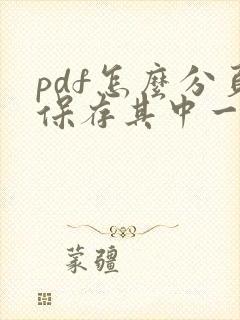 pdf怎麼分頁
保存其中一
蒙疆